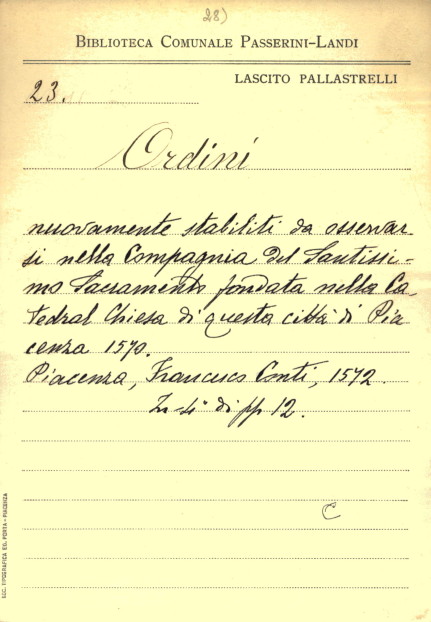 28)
BIBLIOTECA COMUNALE PASSERINI-LANDI
LASCITO PALLASTRELLI
23.
Ordini
nuovamente stabiliti da osservar-
si nella Compagnia del Santissi-
mo Sacramento fondata nella Ca-
tedral Chiesa di questa città di Pia
cenza 1570.
Piacenza, Francesco Conti, 1572.
In-4° di pp 12.
C
SOC. TIPOGRAFICA ED. PORTA - PIACENZA